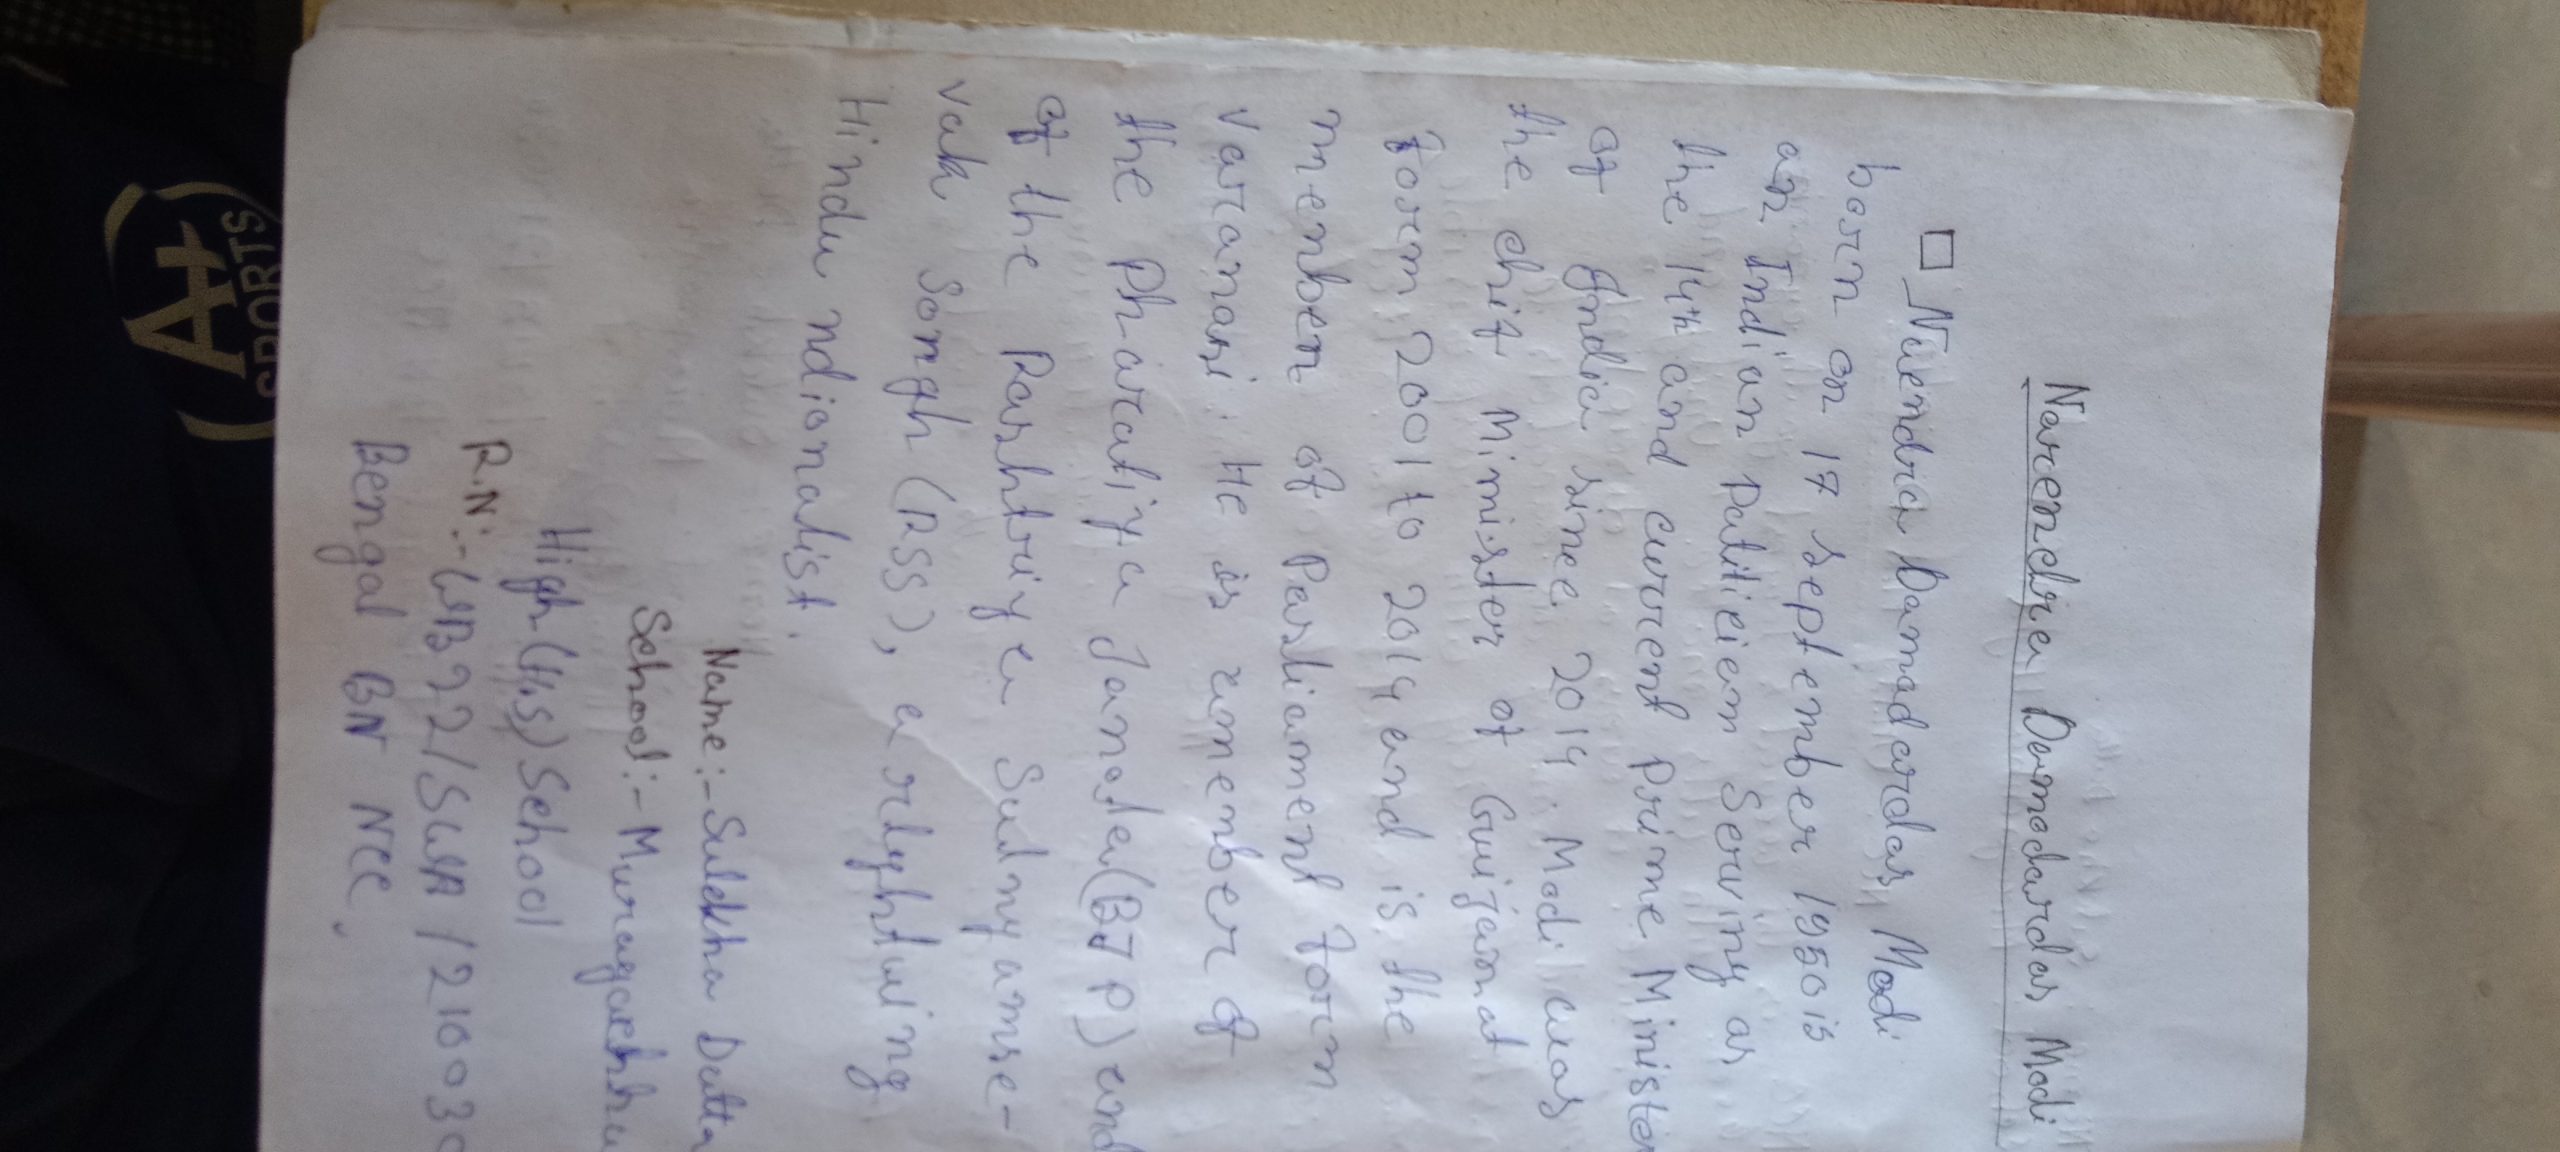 Narendra Damodardas Modi
□ Narendra Damodardas Modi
born on 17 september 1950 is
an Indian Politiciem Serving as
the 14th and current Prime Minister
of India since 2014. Modi was
the chif Minister of Guijarat
form 2001 to 2014 and is the
menber of Parliament form
Varanasi. He is a menber of
the Pharatiya Janata (BJP) and
of the Rashtriya Swayamse-
vak Songh (RSS), a rightwing
Hindu ndionalist.
Name:- Sulekha Dutta
School:- Muragachha
High (H.S) School
R.N:- WB22/SWA/21003
Bengal BN NCC.
A+
SPORTS